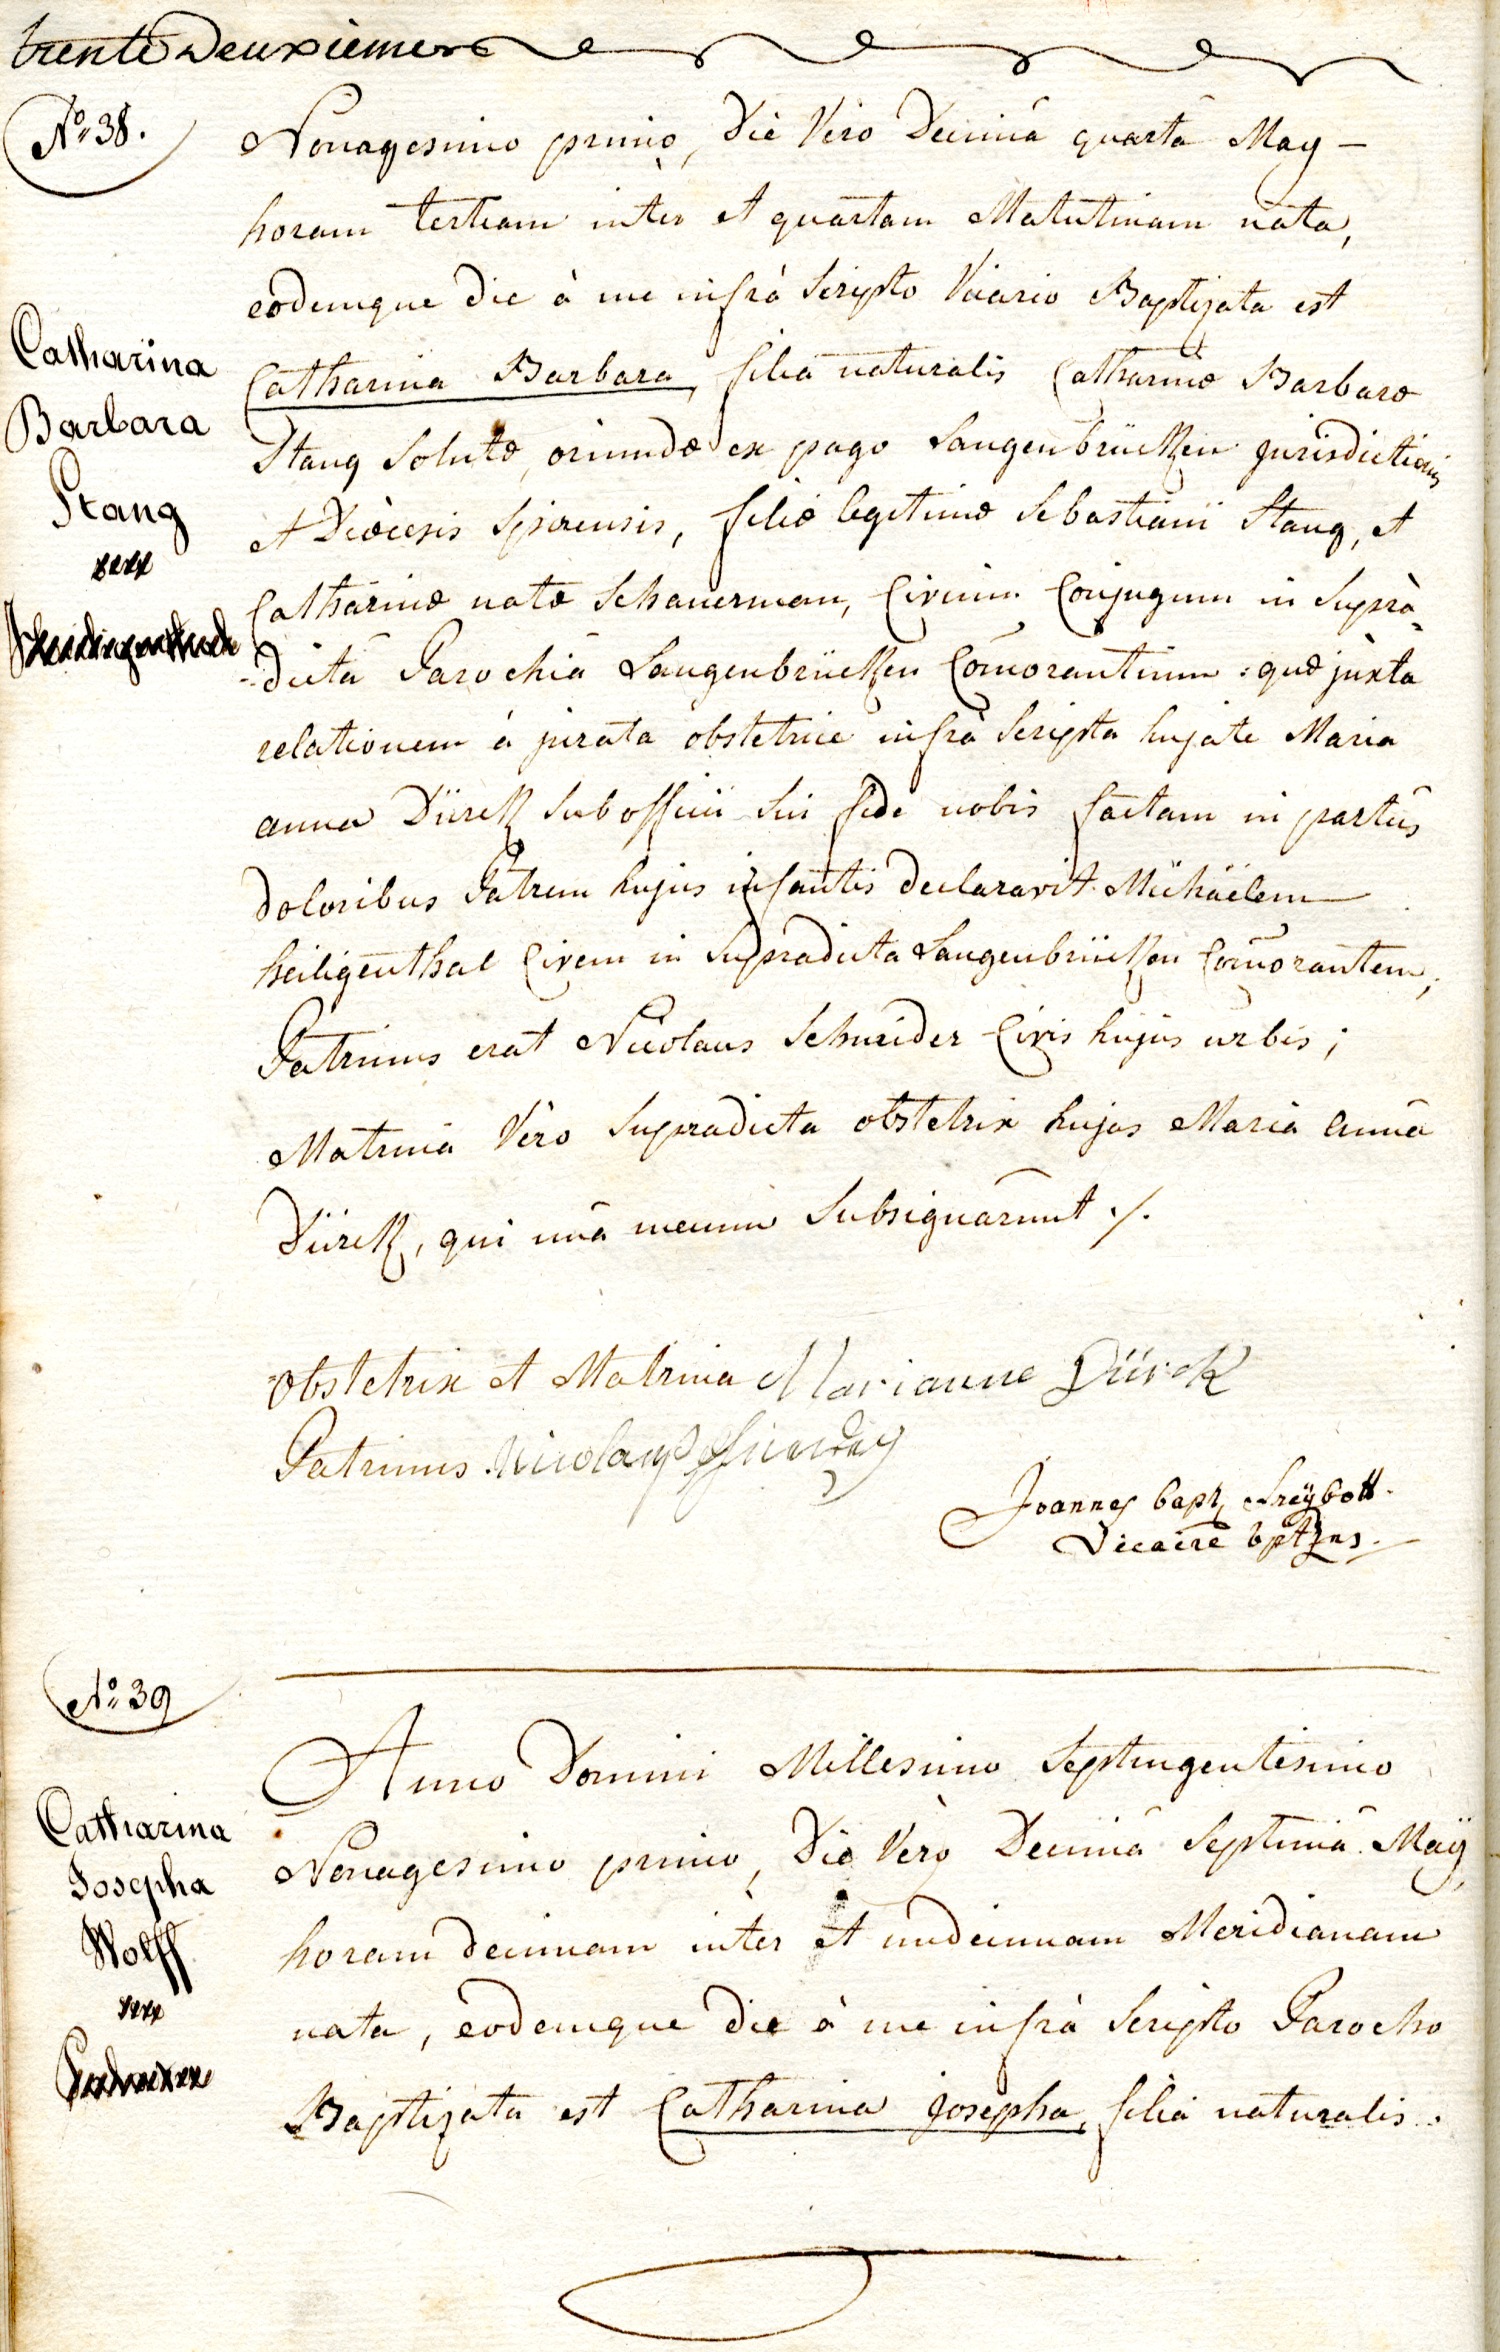 trente deuxieme
No 38.
Nonagesimo primo, Die Vero Decimâ quartâ May —
horam tertiam inter et quartam Matutinam nata,
eodemque die à me infrà Scripto Vicario Baptizata est
Catharina
Catharina Barbara, filia naturalis Catharinæ Barbaræ
Barbara
Stang Solutæ, oriundæ ex pago Langenbrücken Jurisdictionis
Stang
et Diœcesis Spirensis, filiæ legitimæ Sebastiani Stang, et
Catharinæ natæ Schauerman, Civium Conjugum in Suprà-
-dictâ Parochiâ Langenbrücken Com̄orantium: quæ juxta
relationem á jurata obstetrice infrà Scripta hujate Maria
anna Dürck sub officii sui fide nobis factam in partûs
doloribus Patrem hujus infantis declaravit Michäelem
heiligenthal Civem in Supradicta Langenbrücken Com̄orantem;
Patrinus erat Nicolaus Schneider Civis hujus urbis;
Matrina Vero Supradicta obstetrix hujas Maria anna
Dürck, qui unâ mecum Subsignârunt ./.
Obstetrix et Matrina Marianne Dürck
Patrinus Nicolaus
Joannes bapt. Freÿbott.
Vicaire bptzns.
No 39
Anno Domini Millesimo Septingentesimo
Catharina
Nonagesimo primo, Die Verò Decimâ Septimâ Maÿ,
Josepha
horam decimam inter et undecimam Meridianam
Wolff
nata, eodemque die à me infrà Scripto Parocho
Baptizata est Catharina Josepha, filia naturalis.